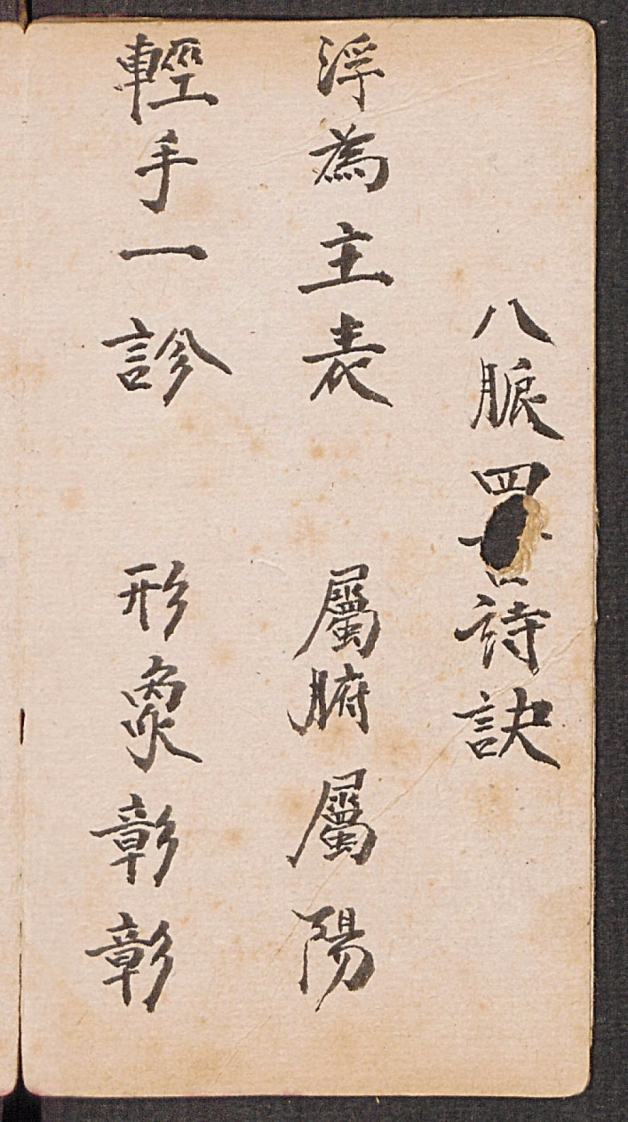 八脈四詩訣
浮為主表 屬腑屬陽
輕手一診 形象彰彰